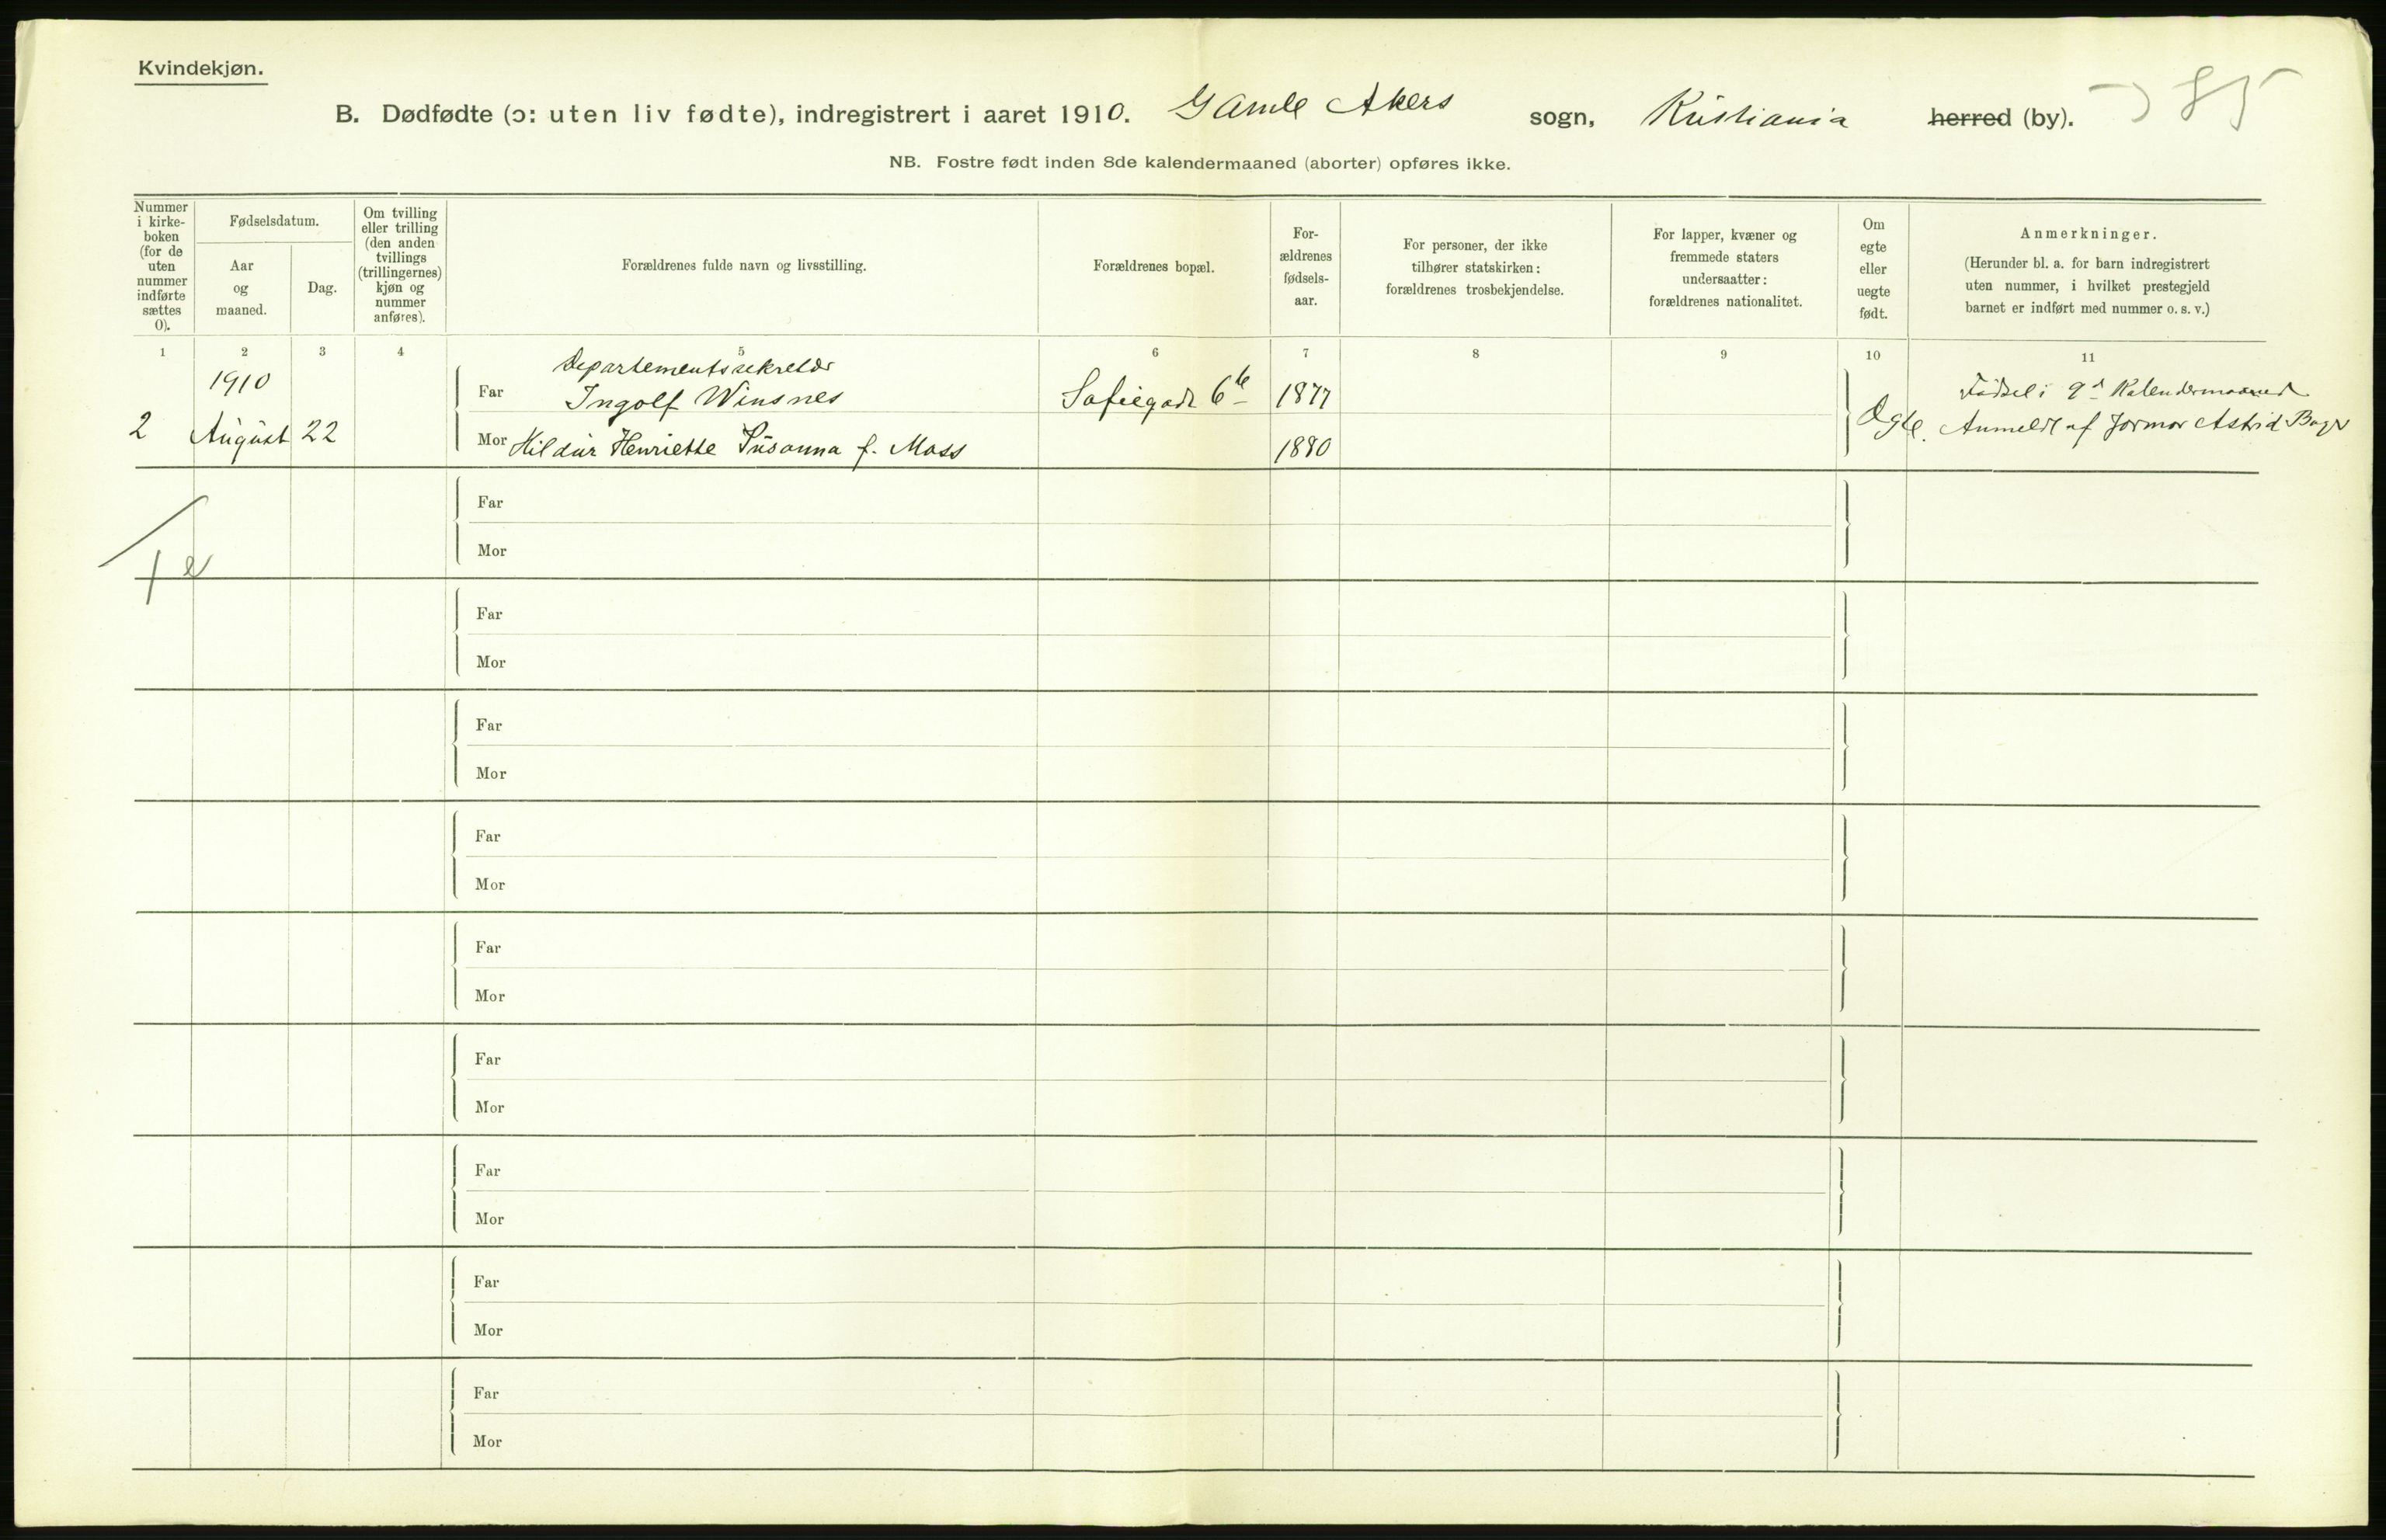 Kvindekjøn.
B. Dødfødte (ɔ: uten liv fødte), indregistrert i aaret 1910. Gamle Akers sogn, Kristiania herred (by). 85
NB. Fostre født inden 8de kalendermaaned (aborter) opføres ikke.
Nummer
i kirke-
boken
(for de
uten
nummer
indførte
sættes
0).
Fødselsdatum.
Aar
og
maaned.
Dag.
Om tvilling
eller trilling
(den anden
tvillings
(trillingernes)
kjøn og
nummer
anføres).
Forældrenes fulde navn og livsstilling.
Forældrenes bopæl.
For-
ældrenes
fødsels-
aar.
For personer, der ikke
tilhører statskirken:
forældrenes trosbekjendelse.
For lapper, kvæner og
fremmede staters
undersaatter:
forældrenes nationalitet.
Om
egte
eller
uegte
født.
Anmerkninger.
(Herunder bl. a. for barn indregistrert
uten nummer, i hvilket prestegjeld
barnet er indført med nummer o. s. v.)
1 2 3 4 5 6 7 8 9 10 11
2
1910
August 22
Departementssekretær
Far Ingolf Winsnes
Mor Hildur Henriette Susanna f. Moss
Sofiegade 6
1877
1880
Ægte.
Fødsel i 9d Kalendermaaned
Anmeldt af Jormor Astrid
1 e
Far
Mor
Far
Mor
Far
Mor
Far
Mor
Far
Mor
Far
Mor
Far
Mor
Far
Mor
Far
Mor